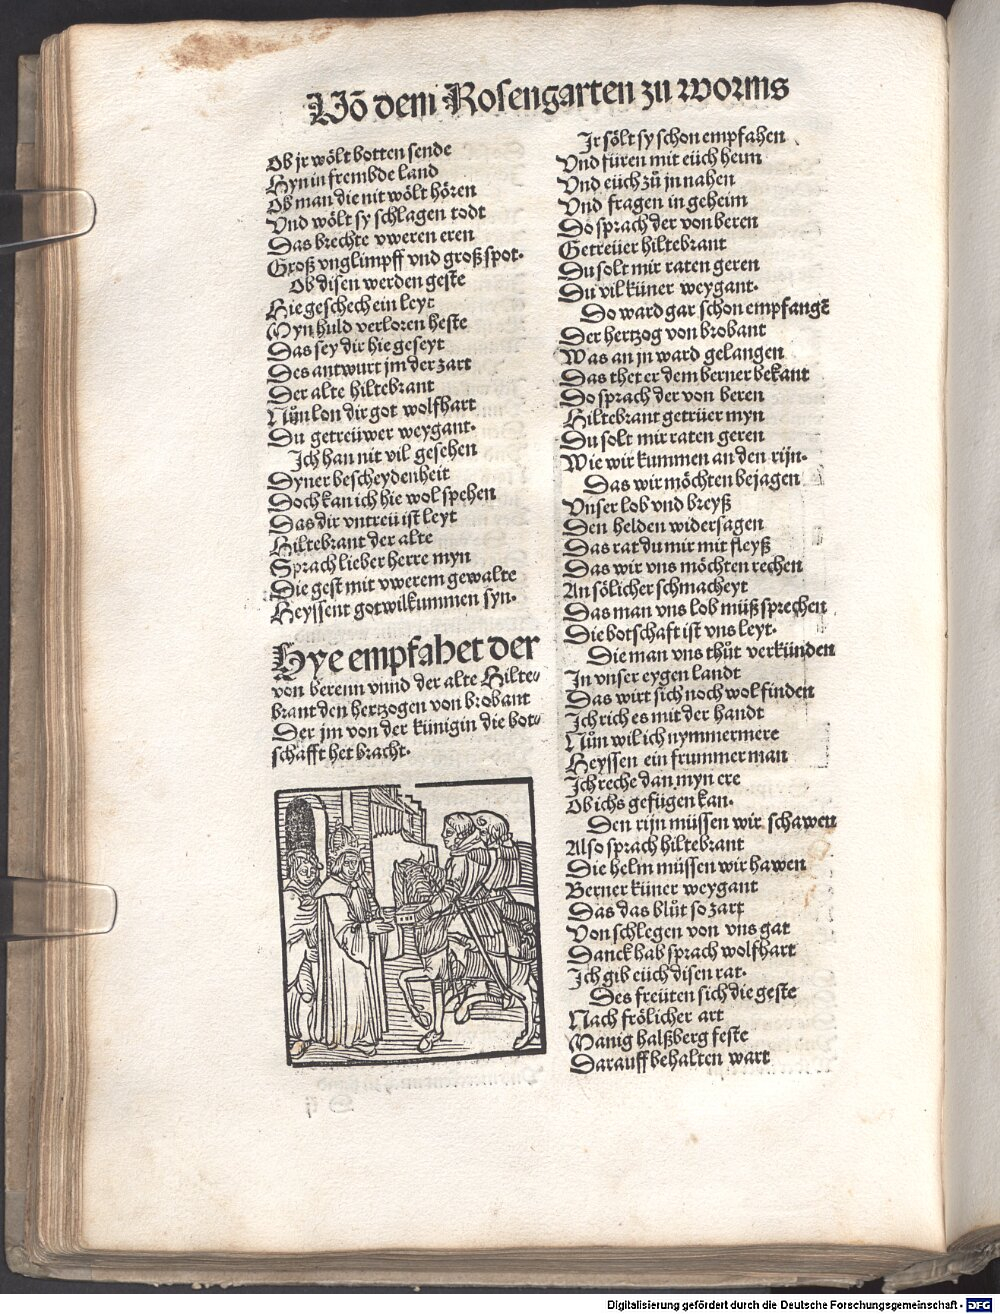 Võ dem Rosengarten zu worms
Ob jr wölt botten sende
Hyn in frembde land
Ob man die nit wölt hören
Vnd wölt sy schlagen todt
Das brechte vweren eren
Groß vnglimpff vnd groß spot.
Ob disen werden geste
Hie geschech ein leyt
Myn huld verloren heste
Das sey dir hie geseyt
Des antwurt jm der zart
Der alte hiltebrant
Nůn lon dir got wolfhart
Du getreüwer weygant.
Ich han nit vil gesehen
Dyner bescheydenheit
Doch kan ich hie wol spehen
Das dir vntreü ist leyt
Hiltebrant der alte
Sprach lieber herre myn
Die gest mit vwerem gewalte
Heyssent got wilkummen syn.
Hye empfahet der
von berenn vnnd der alte Hilte⸗
brant den hertzogen von brobant
Der jm von der künigin die bot⸗
schafft het bracht.
Ir sölt sy schon empfahen
Vnd füren mit eüch heim
Vnd eüch zů jn nahen
Vnd fragen in geheim
Do sprach der von beren
Getreüer hiltebrant
Du solt mir raten geren
Du vil küner weygant.
Do ward gar schon empfangē
Der hertzog von brobant
Was an jn ward gelangen
Das thet er dem berner bekant
Do sprach der von beren
Hiltebrant getrüer myn
Du solt mir raten geren
Wie wir kummen an den rijn.
Das wir möchten bejagen
Vnser lob vnd breyß
Den helden widersagen
Das rat du mir mit fleyß
Das wir vns möchten rechen
An sölicher schmacheyt
Das man vns lob müß sprechen
Die botschaft ist vns leyt.
Die man vns thůt verkünden
In vnser eygen landt
Das wirt sich noch wol finden
Ich rich es mit der handt
Nůn wil ich nymmermere
Heyssen ein frummer man
Ich reche dan myn ere
Ob ichs gefügen kan.
Den rijn müssen wir schawen
Also sprach hiltebrant
Die helm müssen wir hawen
Berner küner weygant
Das das blůt so zart
Von schlegen von vns gat
Danck hab sprach wolfhart
Ich gib eüch disen rat.
Des freüten sich die geste
Nach frölicher art
Manig halßberg feste
Darauff behalten wart
Digitalisierung gefördert durch die Deutsche Forschungsgemeinschaft - DFG